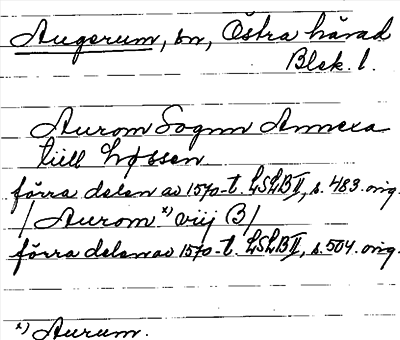 Augerum, sn, Östra härad
Blek. l.
Aurom Sognn Annexa
tiill Løssen
förra delen av 1570-t. LSLB II, s. 483. orig.
/Aurom x) viij B/
förra delen av 1570-t. LSLB II, s. 504. orig.
x) Aurum.